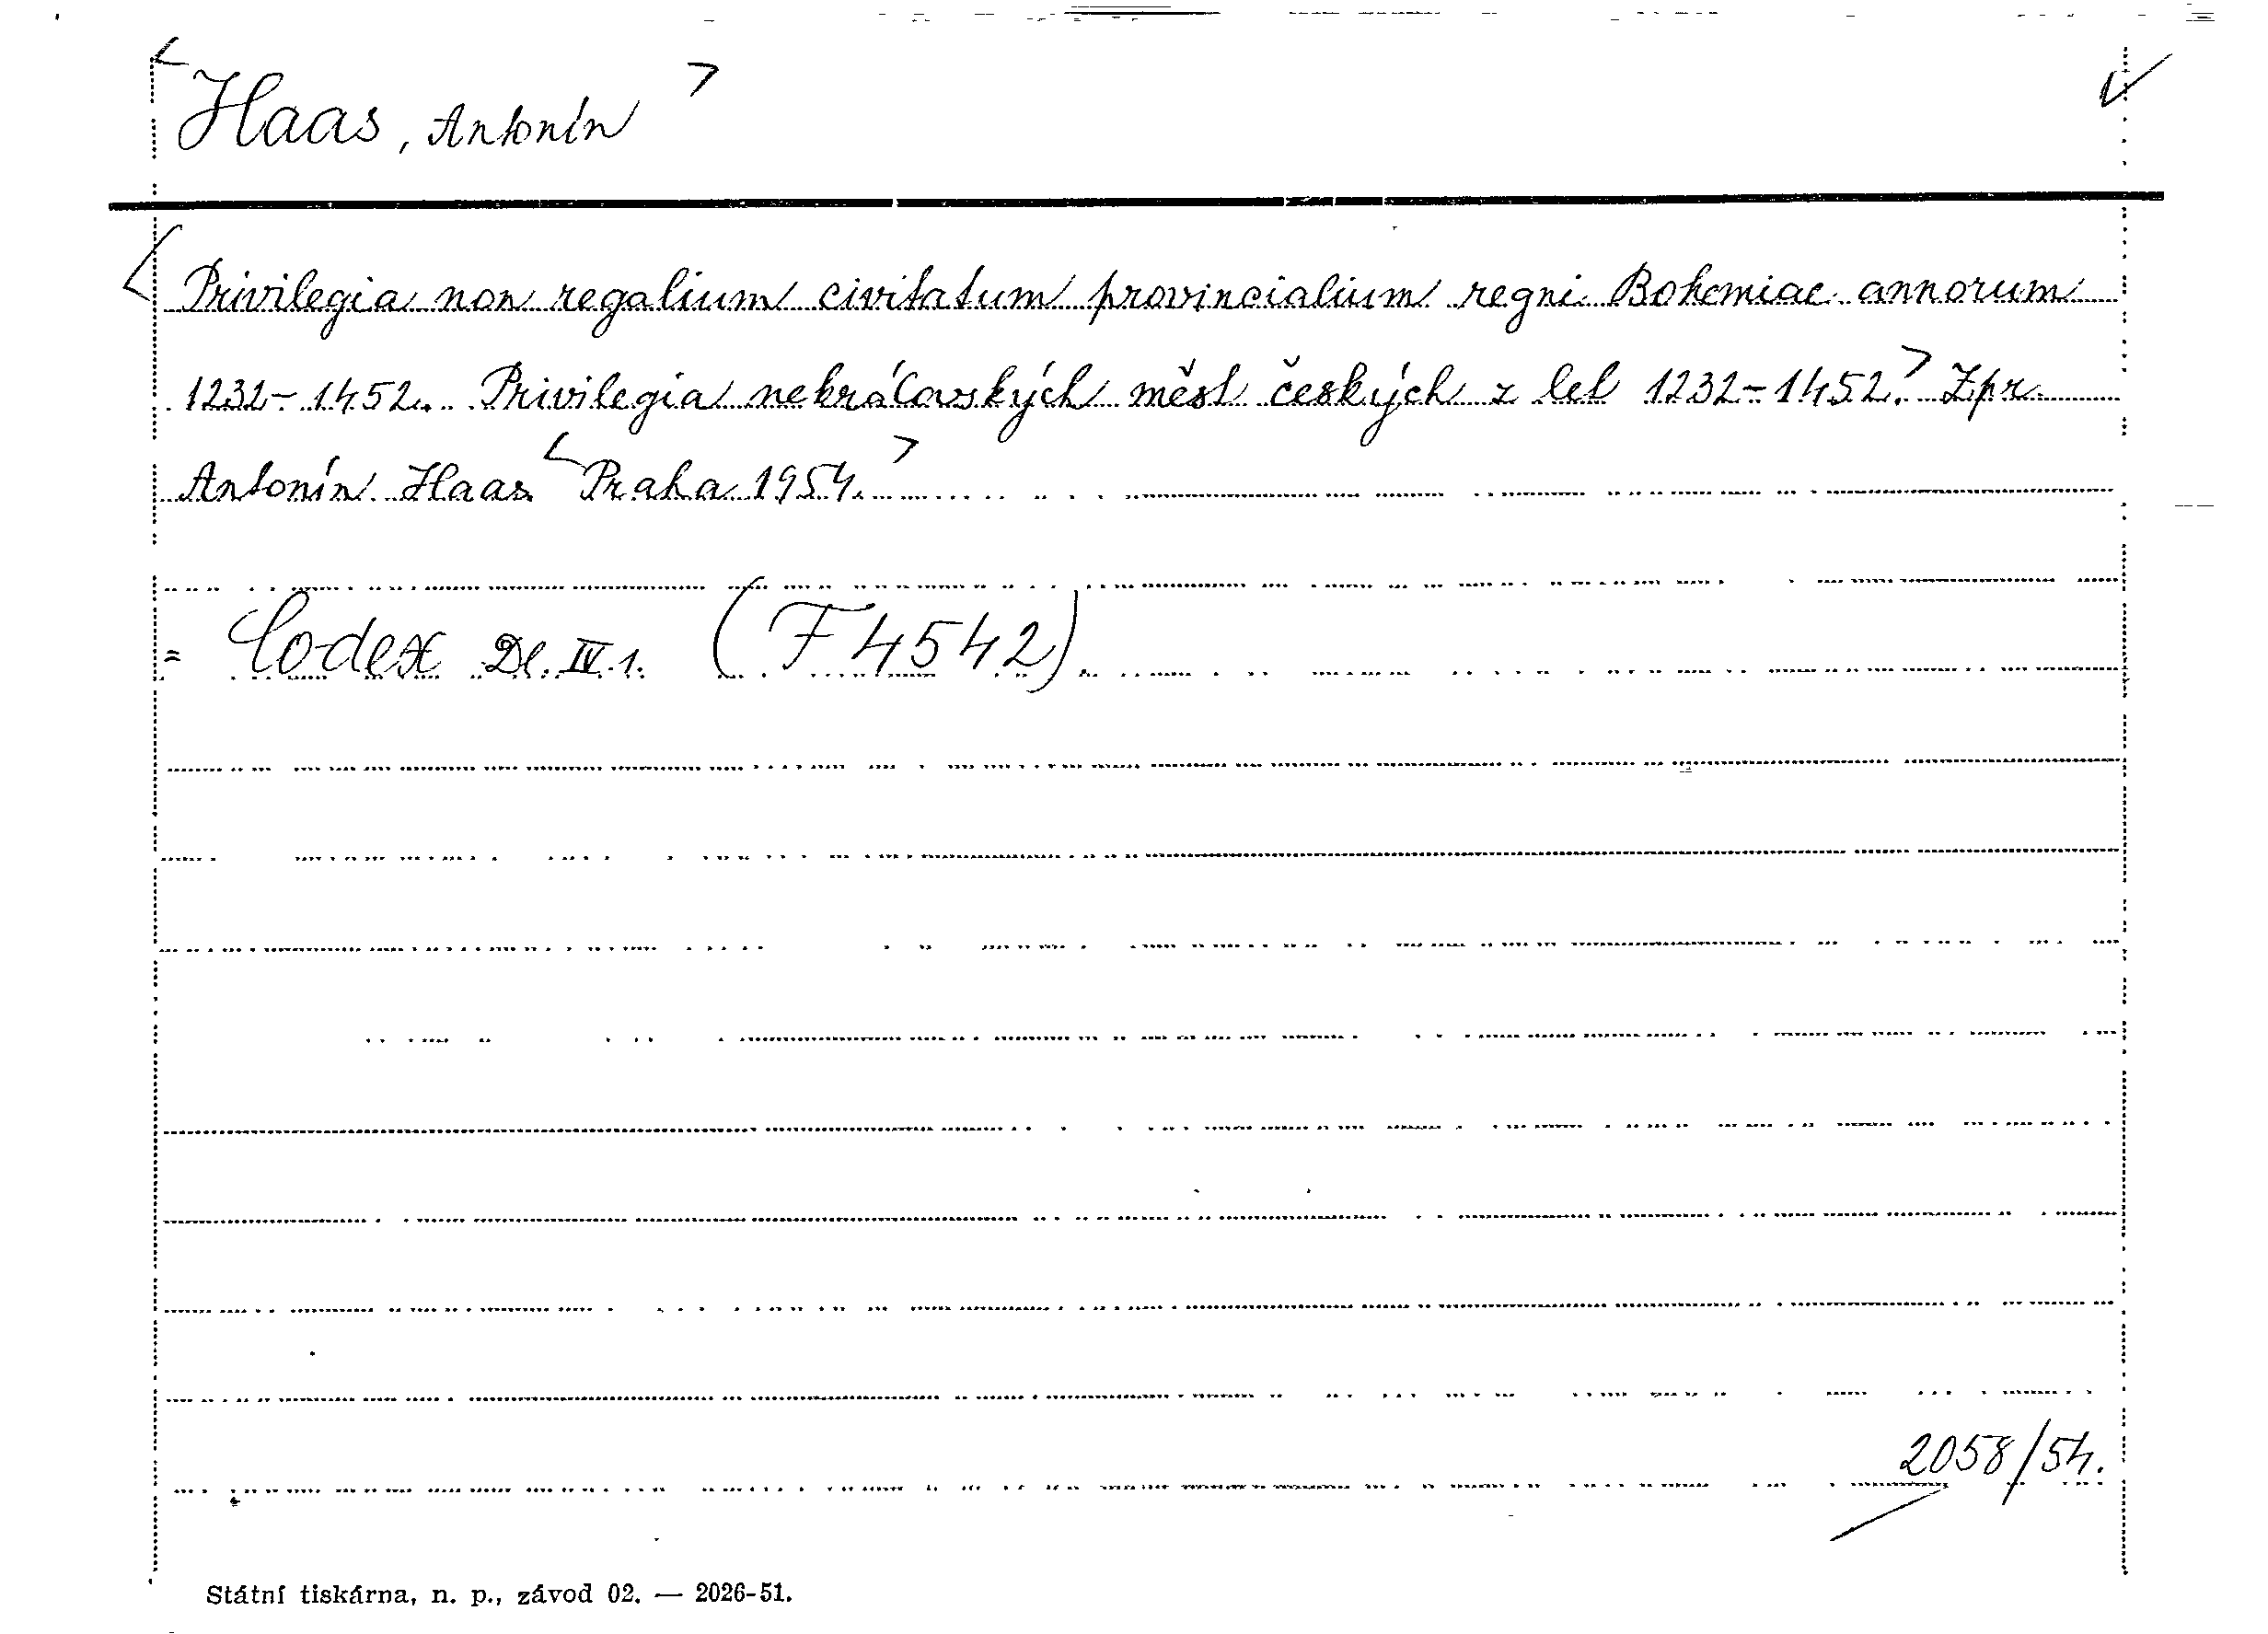 < Haas, Antonín >
< Privilegia non regalium civitatum provincialium regni Bohemiae annorum
1232-1452. Privilegia nekrálovských měst českých z let 1232-1452.> Zpr.
Antonín Haas < Praha 1954. >
= Codex Dl. IV. 1. (F 4542)
2058/54.
Státní tiskárna, n. p., závod 02. — 2026-51.